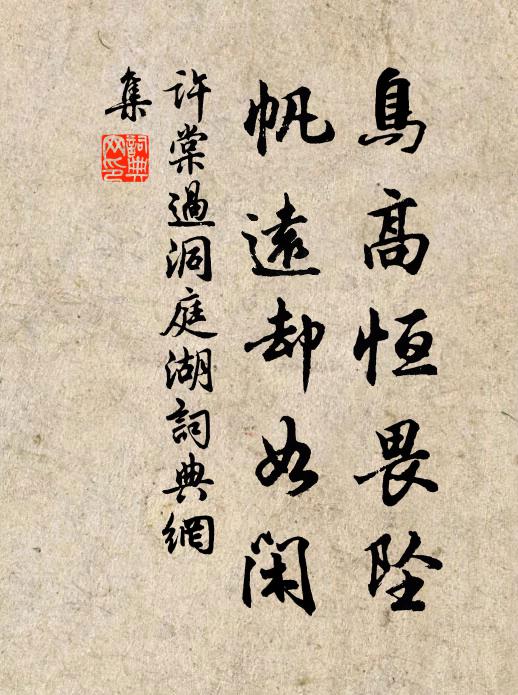 鳥高恒畏墜
帆遠却如閑
許棠過洞庭湖詞典網
集
詞典
网印